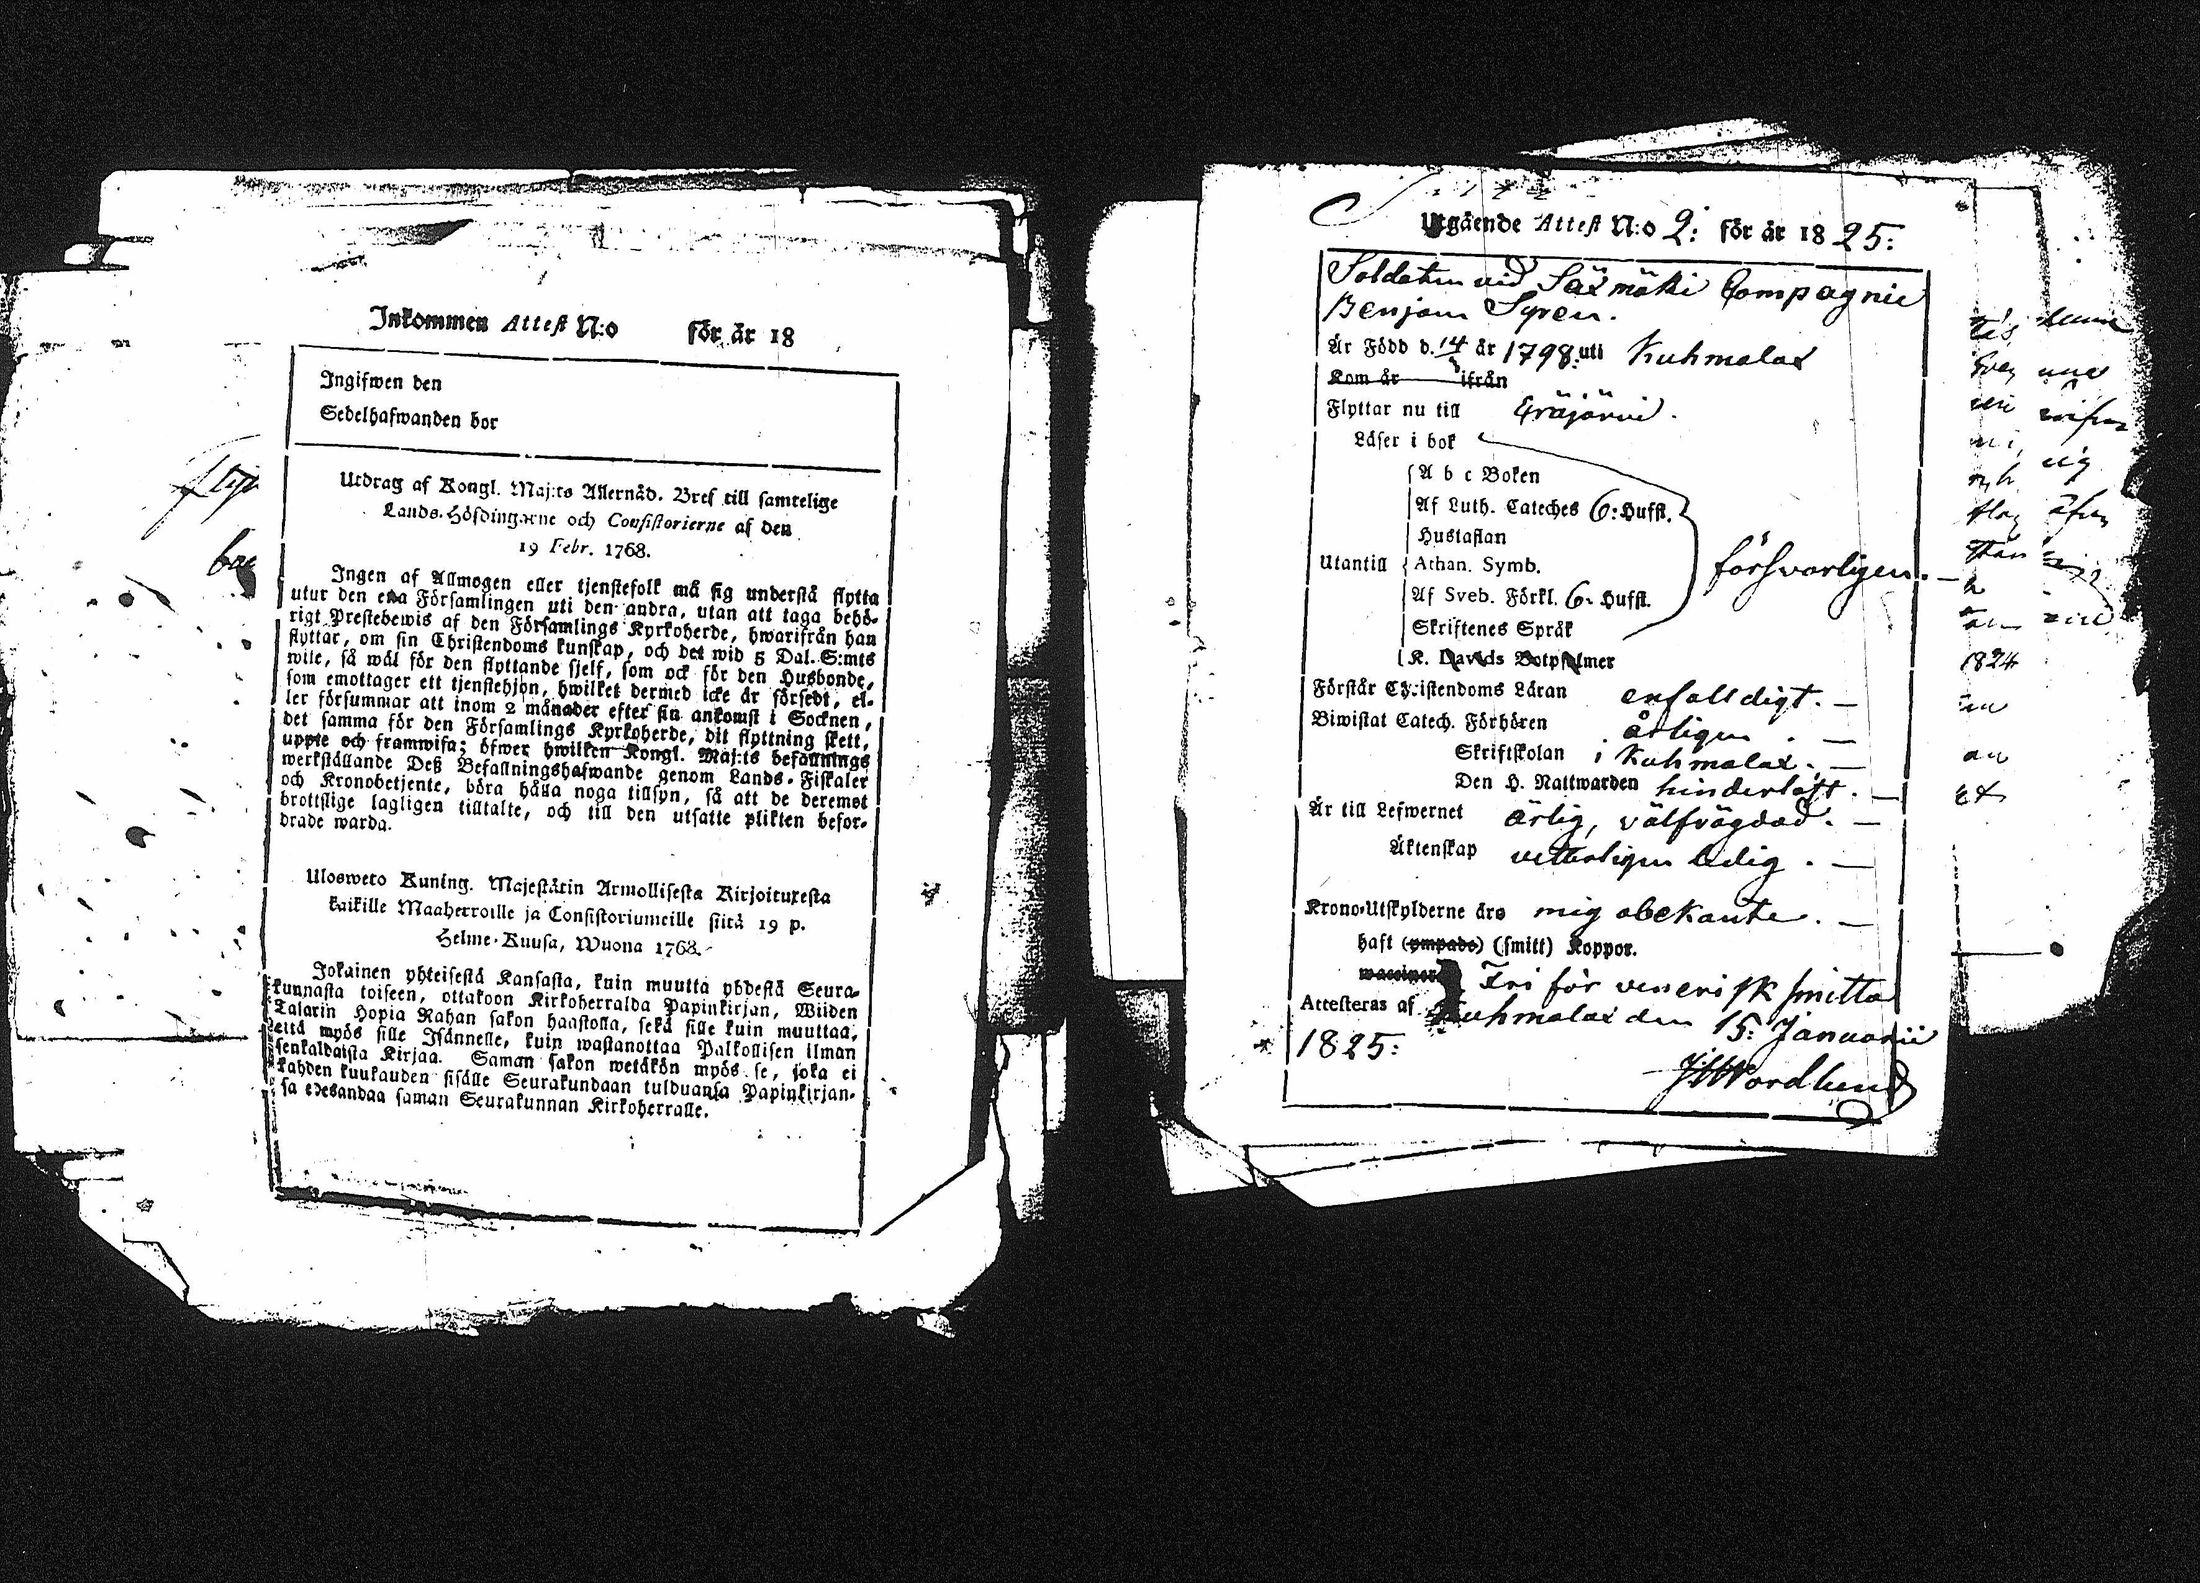 Inkommen Attest N:o för år 18
Ingifwen den
Sedelhafwanden bor
Utdrag af Kongl. Maj:ts Allernåd. Bref till samtelige
Lands-Höfdingarne och Consistorierne af den
19 Febr. 1768.
Ingen af Allmogen eller tjenstefolk må sig understå flytta
utur den ena Församlingen uti den andra, utan att taga behö-
rigt Prestebewis af den Församlings Kyrkoherde, hwarifrån han
flyttar, om sin Christendoms kunskap, och det wid 5 Dal. S:mts
wite, så wäl för den flyttande sjelf, som ock för den Husbonde,
som emottager ett tjenstehjon, hwilket dermed icke är försedt, el-
ler försummar att inom 2 månader efter sin ankomst i Socknen,
det samma för den Församlings Kyrkoherde, dit flyttning skett,
uppte och framwisa; öfwer hwilken Kongl. Maj:ts befallnings
werkställande Deß Befallningshafwande genom Lands-Fiskaler
och Kronobetjente, böra hålla noga tillsyn, så att de deremot
brottslige lagligen tilltalte, och till den utsatte plikten befor-
drade warda.
Ulosweto Kuning. Majestätin Armollisesta Kirjoituxesta
kaikille Maaherroille ja Consistoriumeille siitä 19 p.
Helme-Kuusa, Wuona 1768.
Jokainen yhteisestä Kansasta, kuin muutta yhdestä Seura-
kunnasta toiseen, ottakoon Kirkoherralda Papinkirjan, Wiiden
Talarin Hopia Rahan sakon haastolla, sekä sille kuin muuttaa,
että myös sille Isännelle, kuin wastanottaa Palkollisen ilman
senkaldaista Kirjaa. Saman sakon wetäkön myös se, joka ei
kahden kuukauden sisälle Seurakundaan tulduansa Papinkirjan-
sa edesandaa saman Seurakunnan Kirkoherralle.
Utgående Attest N:o 2: för år 1825:
Soldaten vid Säxmäki Compagnie
Benjam Syren.
Är Född d. 14 år 1798: uti Kuhmalax
Kom år ifrån
Flyttar nu till Eräjärvi.
Läser i bok
A b c Boken
Af Luth. Cateches 6: Hufst.
Hustaflan
Utantill Athan. Symb. försvarligen.
Af Sveb. Förkl. 6: Hufst.
Skriftenes Språk
K. Davids Botpsalmer
Förstår Christendoms Läran enfalldigt.
Biwistat Catech. Förhören årligen.
Skriftskolan i Kuhmalax.
Den H. Nattwarden hinderlöst.
Är till Lefwernet ärlig, välfrägdad.
Äktenskap vetterligen ledig.
Krono-Utskylderne äro mig obekante.
haft (ympade) (smitt) Koppor.
Fri för venerisk smitta
Attesteras af Kuhmalax den 15: Januarii
1825:
Nordlund
1824